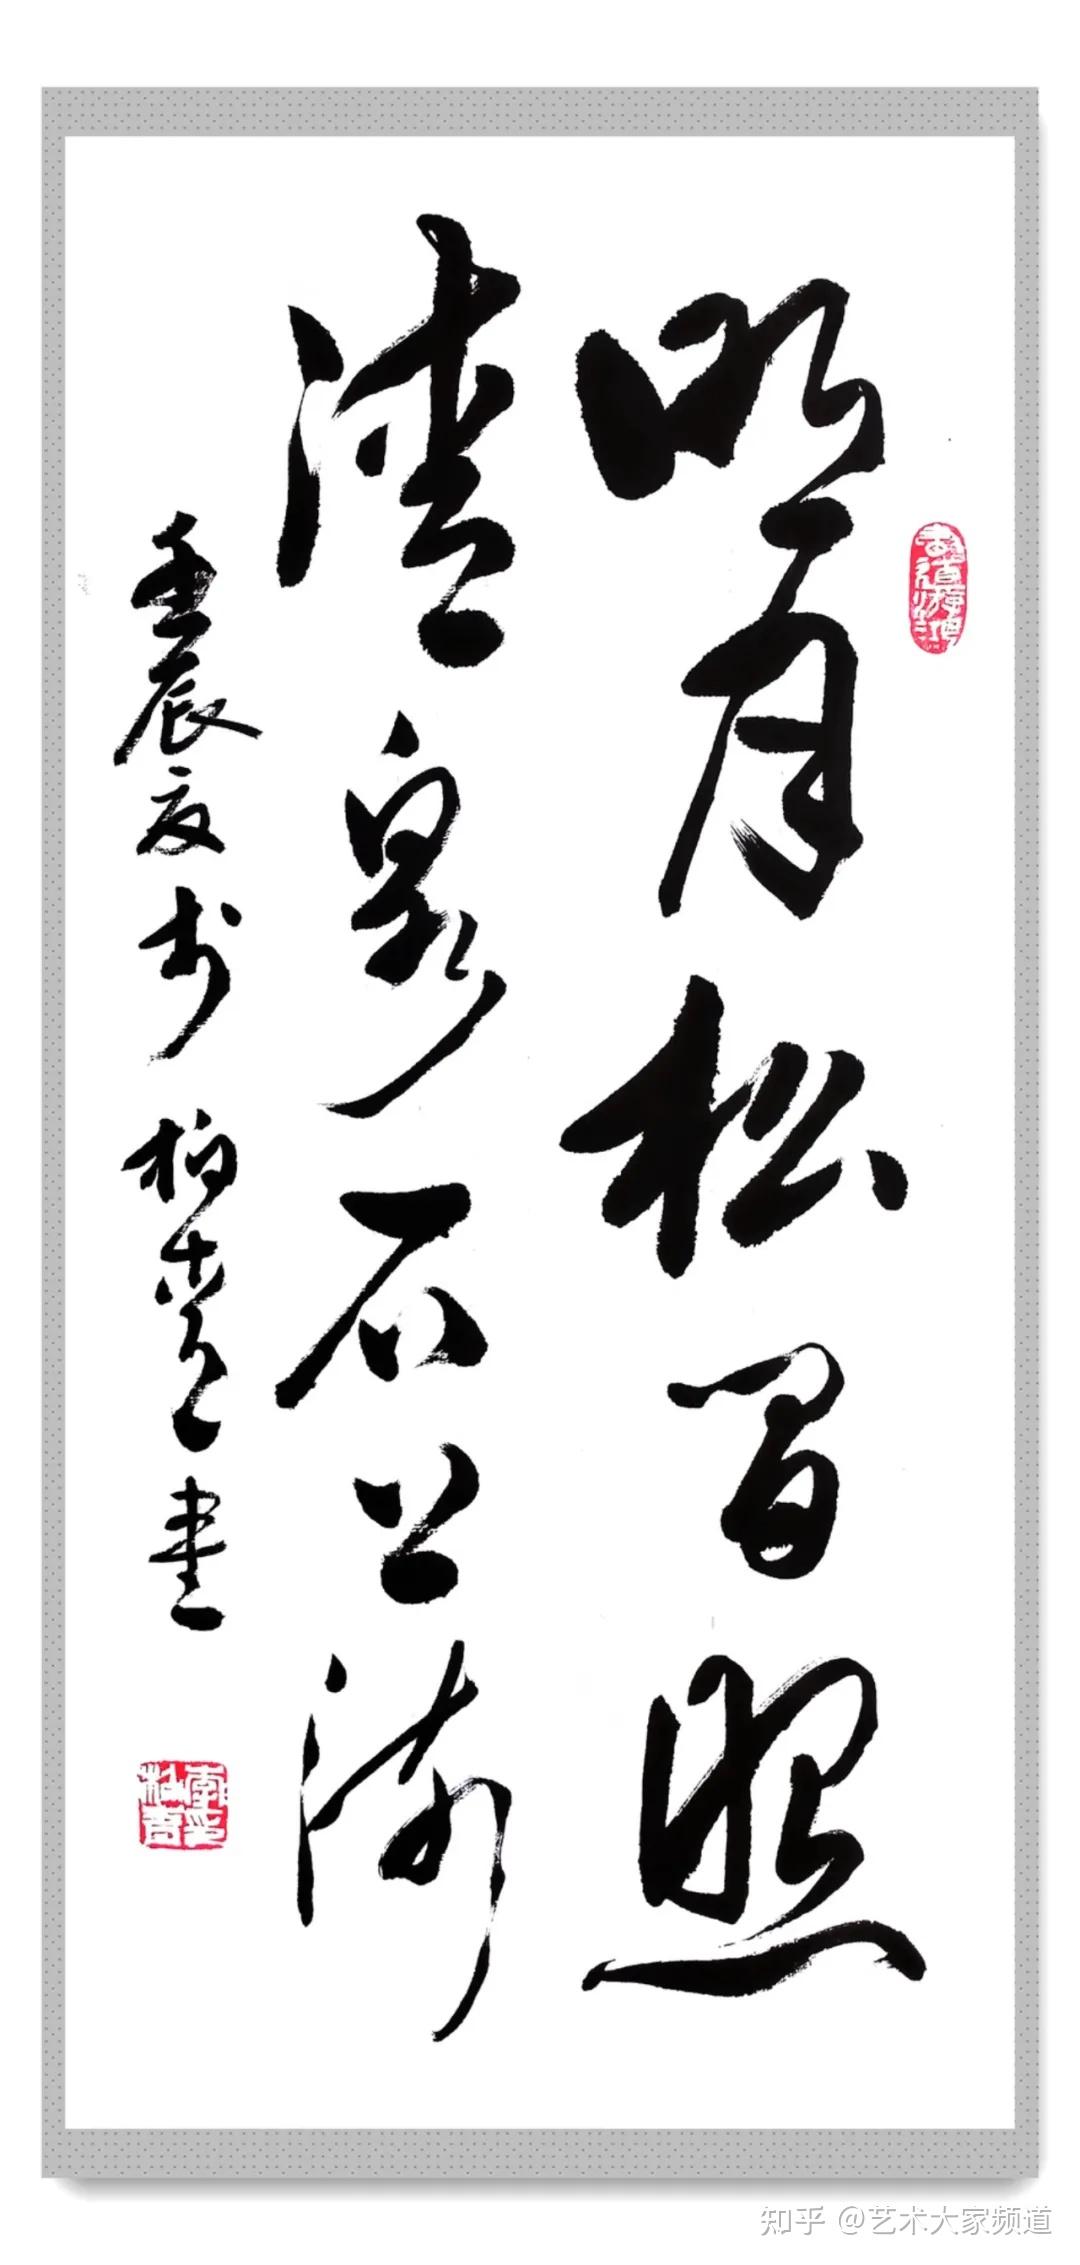 明月松间照
清泉石上流
壬辰夏 柏青书
知乎 @艺术大家频道